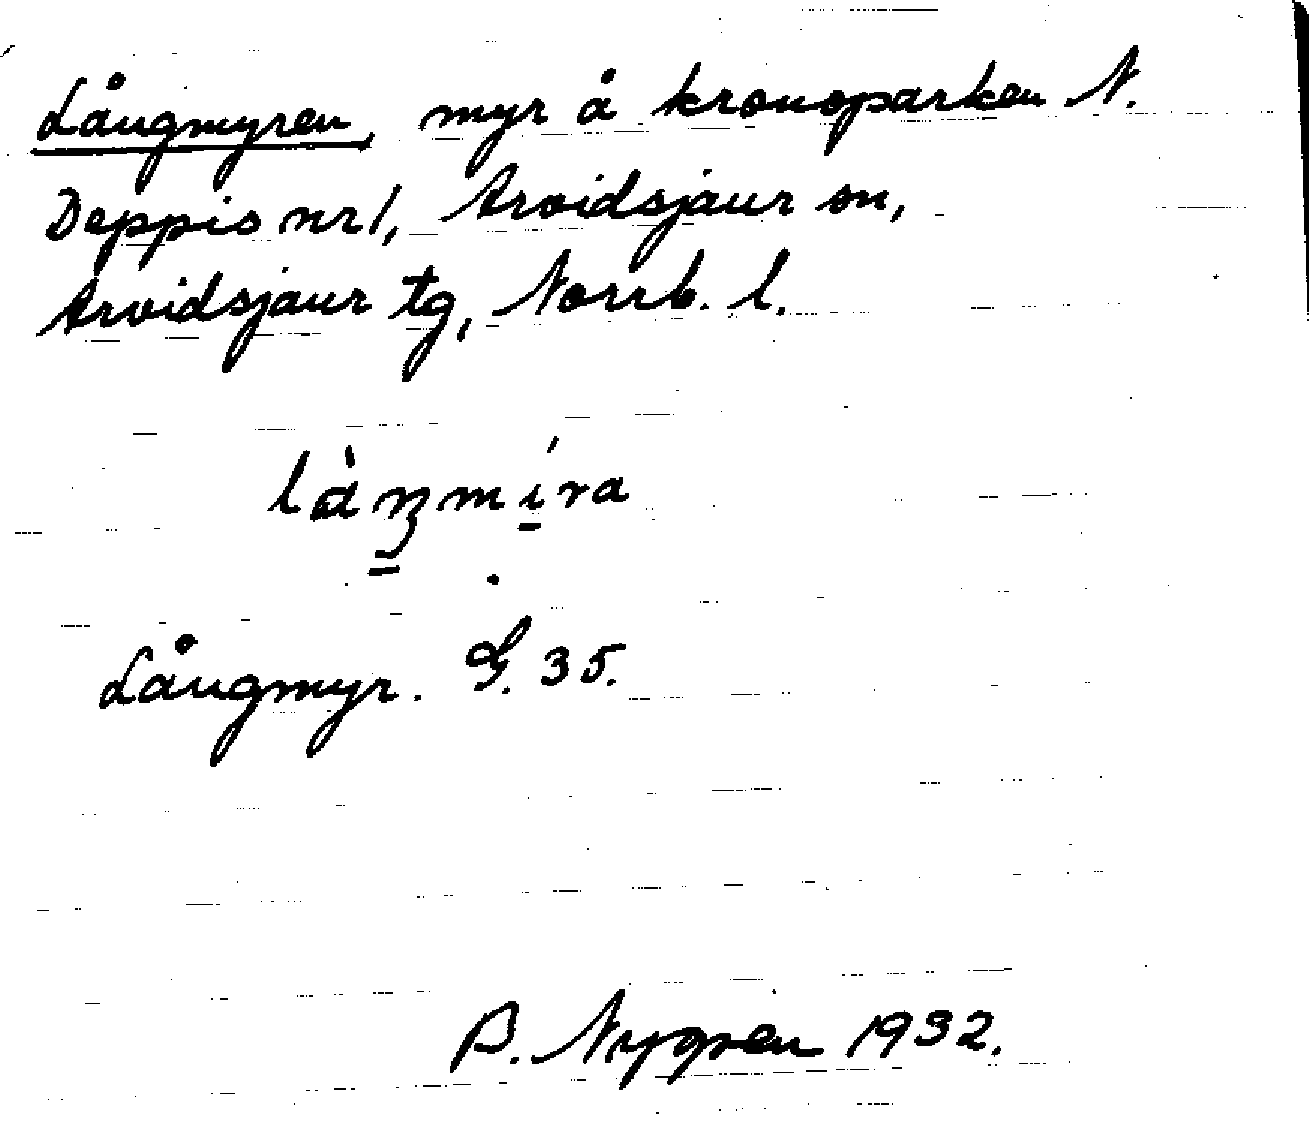 Långmyren, myr å kronoparken N.
Deppis nr 1, Arvidsjaur sn,
Arvidsjaur tg, Norrb. l.
làŋmíra
Långmyr. G. 35.
B. Nygren 1932.